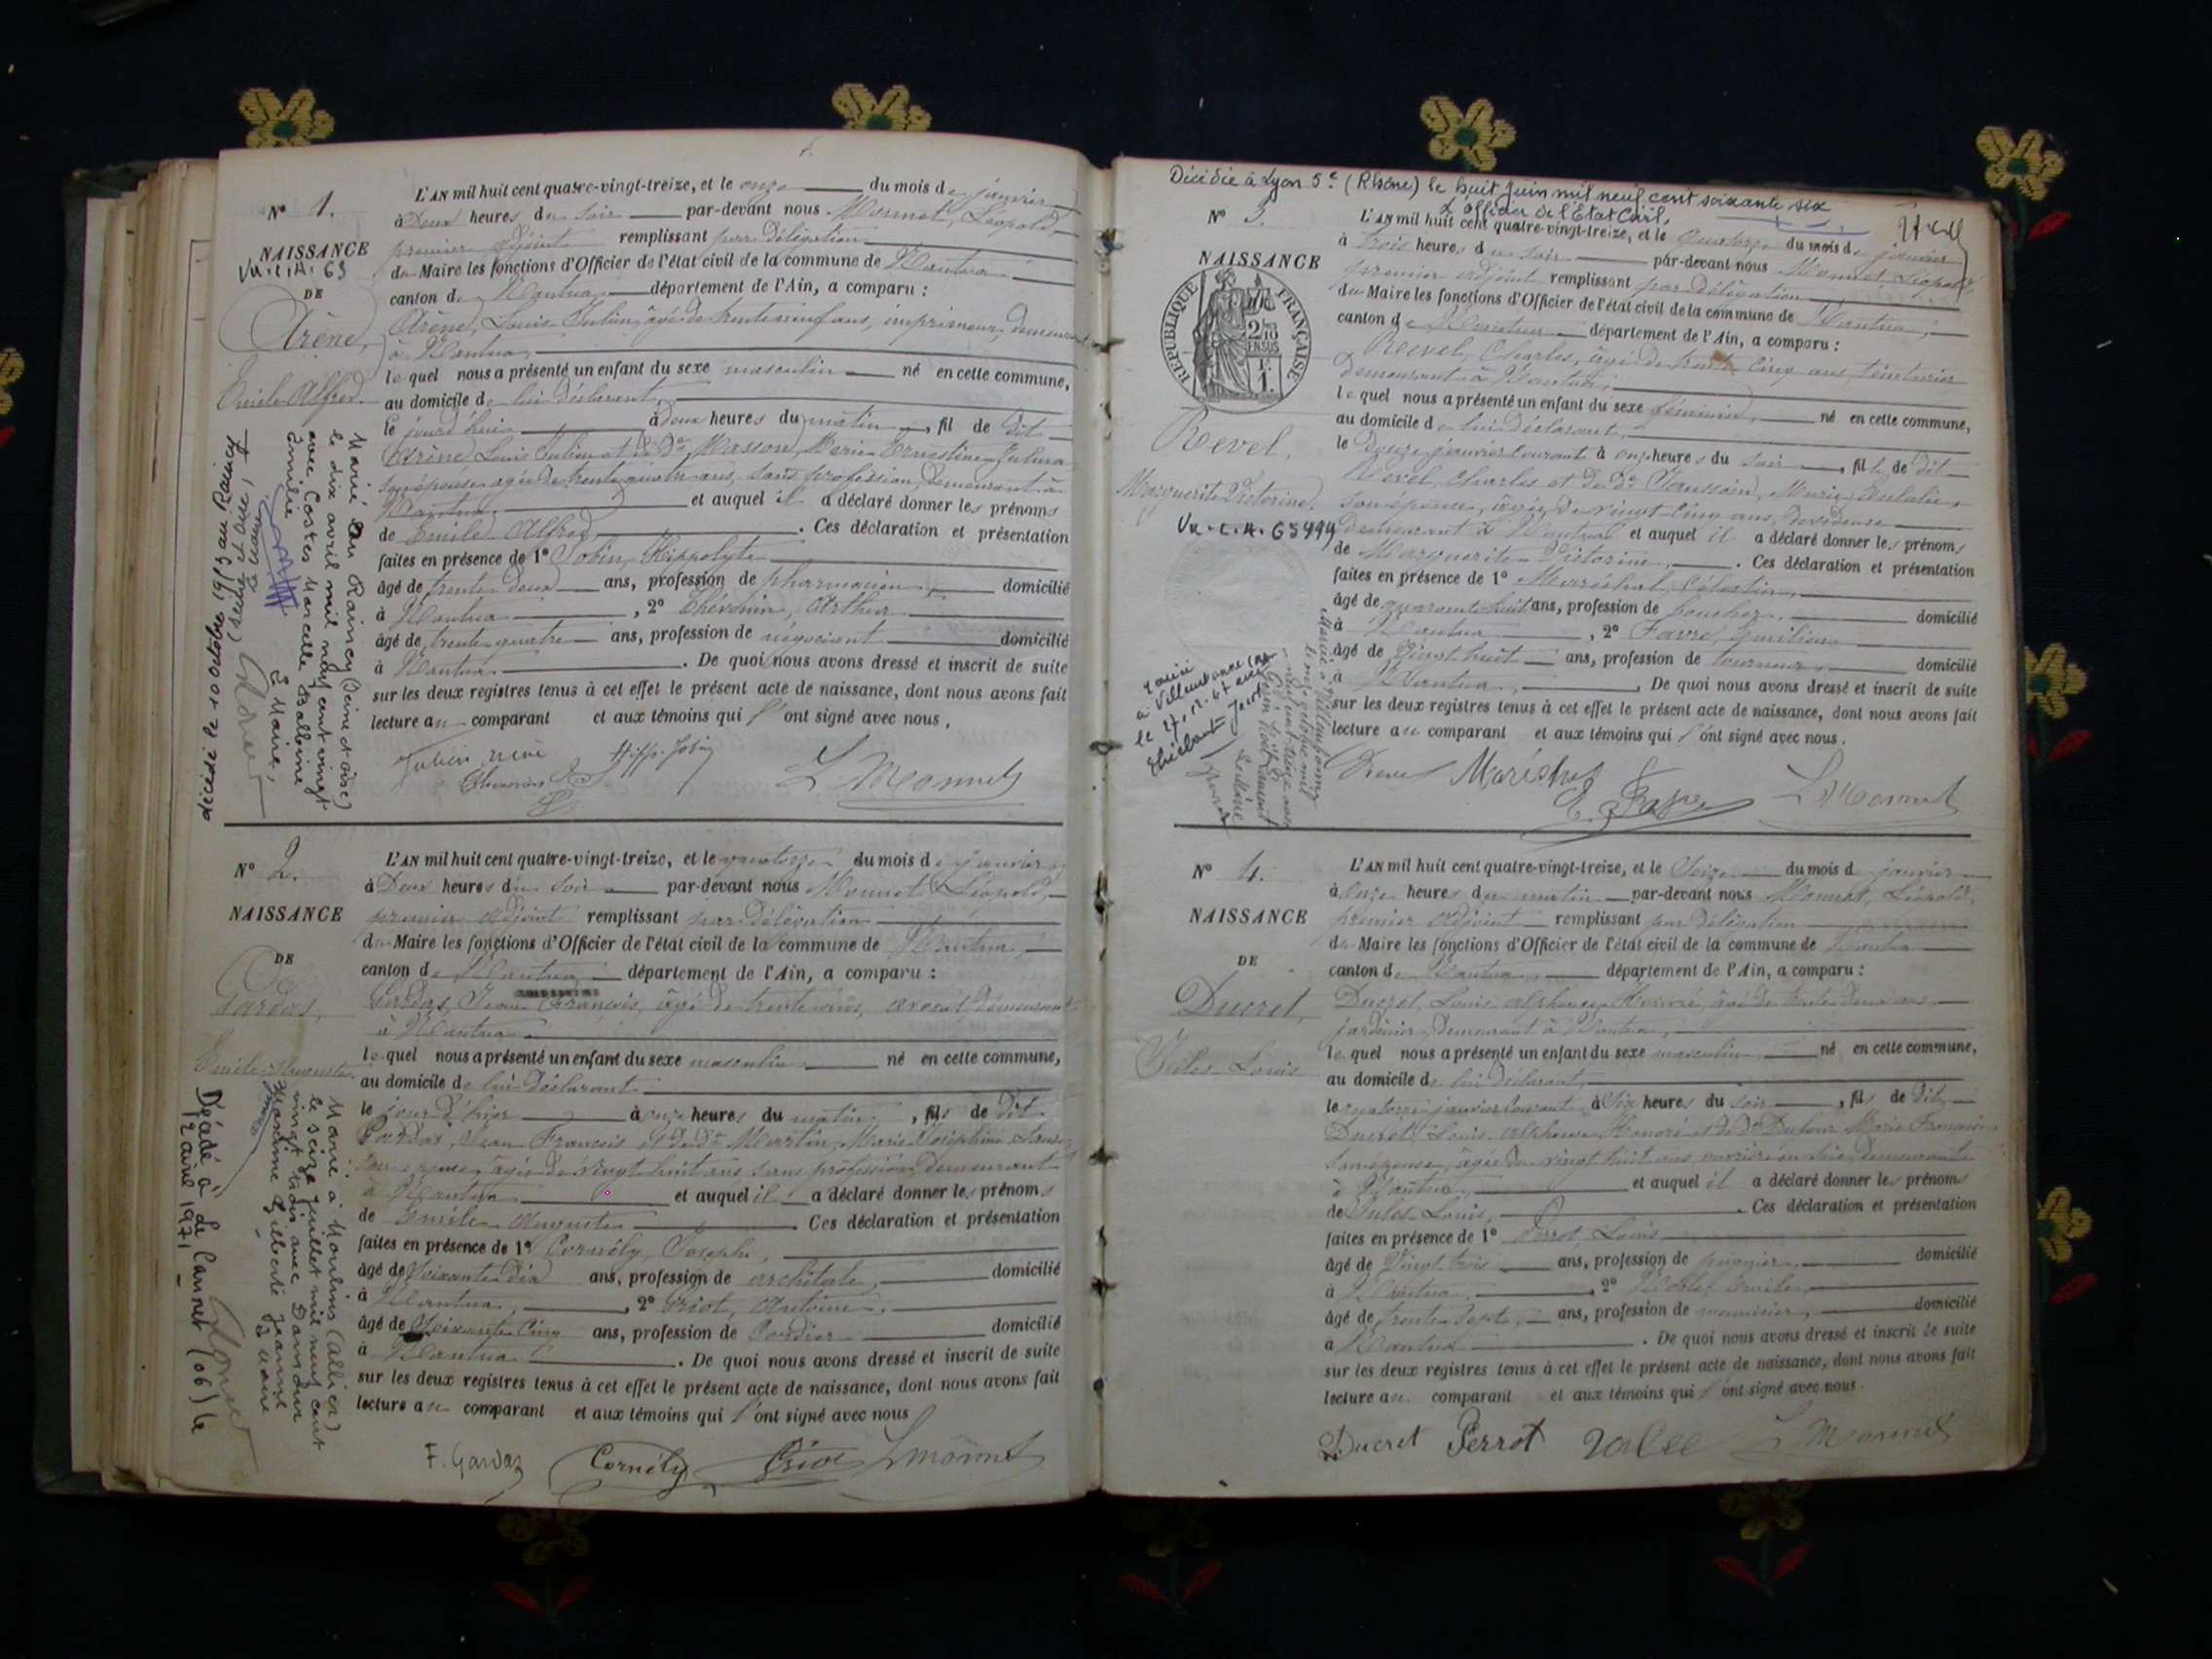 N° 1.
NAISSANCE
Vu. C. A. 63
DE
Arène,
Emile Alfred.
L'AN mil huit cent quatre-vingt-treize, et le onze du mois de janvier
à Deux heures du soir par-devant nous Monnet, Léopold,
premier adjoint remplissant par délégation
du Maire les fonctions d'Officier de l'état civil de la commune de Nantua
canton de Nantua département de l'Ain, a comparu :
Arène, Louis Julien, âgé de trente neuf ans, imprimeur, demeurant
à Nantua,
lequel nous a présenté un enfant du sexe masculin né en cette commune,
au domicile de lui déclarant,
le jourd'hui à deux heures du matin, fil de dit
Arène Louis Julien et de De Masson, Marie Ernestine
son épouse âgée de trente quatre ans, sans profession, demeurant à
Nantua, et auquel il a déclaré donner les prénoms
de Emile Alfred. Ces déclaration et présentation
faites en présence de 1° Jobin, Hippolyte
âgé de trente deux ans, profession de pharmacien, domicilié
à Nantua, 2° Chevenin, Arthur
âgé de trente quatre ans, profession de négociant domicilié
à Nantua. De quoi nous avons dressé et inscrit de suite
sur les deux registres tenus à cet effet le présent acte de naissance, dont nous avons fait
lecture au comparant et aux témoins qui l'ont signé avec nous.
Hipp. Jobin
L Monnet
Marié au Raincy (Seine et Oise)
le dix avril mil neuf cent vingt
avec Costes Marcelle Balbine
Emilie
Le Maire,
décédé le 10 octobre 1913 au Raincy
(Seine et Oise)
N° 2.
NAISSANCE
DE
Gardas,
Emile Auguste
L'AN mil huit cent quatre-vingt-treize, et le quatorze du mois de janvier
à Deux heures du soir par-devant nous Monnet Léopold,
premier adjoint remplissant par délégation
du Maire les fonctions d'Officier de l'état civil de la commune de Nantua,
canton de Nantua département de l'Ain, a comparu :
Gardas, Jean François, âgé de trente ans, avocat demeurant
à Nantua
lequel nous a présenté un enfant du sexe masculin né en cette commune,
au domicile de lui déclarant
le jour d'hier à onze heures du matin, fils de dit
Gardas, Jean François et de De Martin, Marie Joséphine
son épouse, âgée de vingt huit ans, sans profession, demeurant
à Nantua et auquel il a déclaré donner les prénoms
de Emile Auguste Ces déclaration et présentation
faites en présence de 1° Cornély, Joseph,
âgé de Soixante dix ans, profession de architecte, domicilié
à Nantua, 2° Antoine,
âgé de Soixante Cinq ans, profession de Cordier domicilié
à Nantua. De quoi nous avons dressé et inscrit de suite
sur les deux registres tenus à cet effet le présent acte de naissance, dont nous avons fait
lecture au comparant et aux témoins qui l'ont signé avec nous
F. Gardaz Cornély L Monnet
Marié à Moulins (Allier)
le seize juillet mil neuf cent
vingt trois avec
Gilberte Jeanne
Décédé à Le Cannet (06) le
12 avril 1971
Décédée à Lyon 5e (Rhône) le huit juin mil neuf cent soixante six
L'officier de l'Etat Civil,
N° 3.
NAISSANCE
RÉPUBLIQUE FRANÇAISE
2/10
EN SUS
1 F.
Revel.
Marguerite Victorine.
Vu. C. A. 63999
L'AN mil huit cent quatre-vingt-treize, et le Quatorze du mois de janvier
à trois heures du soir par-devant nous Monnet Léopold
premier adjoint remplissant par délégation
du Maire les fonctions d'Officier de l'état civil de la commune de Nantua,
canton de Nantua département de l'Ain, a comparu :
Revel, Charles, âgé de trente cinq ans, teinturier
demeurant à Nantua,
lequel nous a présenté un enfant du sexe féminin, né en cette commune,
au domicile de lui déclarant,
le Douze janvier courant à onze heures du soir, fille de dit
Revel, Charles et de De Marie
son épouse, âgée de vingt cinq ans,
demeurant à Nantua et auquel il a déclaré donner les prénoms
de Marguerite Victorine. Ces déclaration et présentation
faites en présence de 1° Maréchal, Célestin,
âgé de quarante huit ans, profession de domicilié
à Nantua, 2° Favre, Emilien
âgé de Vingt huit ans, profession de tourneur, domicilié
à Nantua, De quoi nous avons dressé et inscrit de suite
sur les deux registres tenus à cet effet le présent acte de naissance, dont nous avons fait
lecture au comparant et aux témoins qui l'ont signé avec nous.
Revel Maréchal L Monnet
à Villeurbanne
N° 4.
NAISSANCE
DE
Ducret,
Jules Louis
L'AN mil huit cent quatre-vingt-treize, et le Seize du mois d janvier
à onze heures du matin par-devant nous Monnet, Léopold,
premier adjoint remplissant par délégation
du Maire les fonctions d'Officier de l'état civil de la commune de Nantua
canton de Nantua, département de l'Ain, a comparu :
Ducret, Louis Alphonse Honoré, âgé de trente deux ans
jardinier, demeurant à Nantua,
lequel nous a présenté un enfant du sexe masculin né en cette commune,
au domicile de lui déclarant,
le quatorze janvier courant à Six heures du soir, fils de dit
Ducret, Louis Alphonse Honoré et de De Dufour Marie Françoise
son épouse, âgée de vingt huit ans ouvrière en soie, demeurante
à Nantua, et auquel il a déclaré donner les prénoms
de Jules Louis, Ces déclaration et présentation
faites en présence de 1° Perrot, Louis
âgé de Vingt trois ans, profession de domicilié
à Nantua, 2° Emile,
âgé de trente sept ans, profession de menuisier, domicilié
à Nantua. De quoi nous avons dressé et inscrit de suite
sur les deux registres tenus à cet effet le présent acte de naissance, dont nous avons fait
lecture au comparant et aux témoins qui l'ont signé avec nous.
Ducret Perrot L Monnet